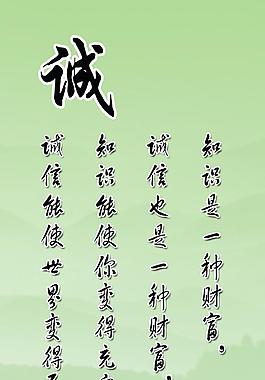 誠
知识是一种财富,
诚信也是一种财富
知识能使你变得充
诚信能使世界变得